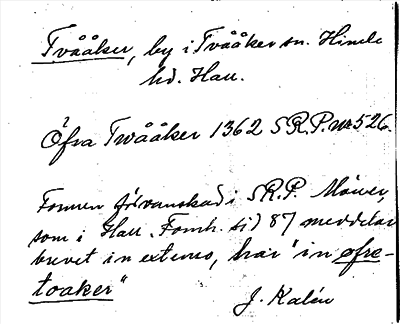 Tvååker, by i Tvååker sn. Himle
hd. Hall.
Öfra Twååker 1362 SRP. nr 526.
Formen förvanskad i SRP. Möwer,
som i Hall. Fornh. sid 87 meddelar
brevet in extenso, har "in øfre-
toaker"
J. Kalén